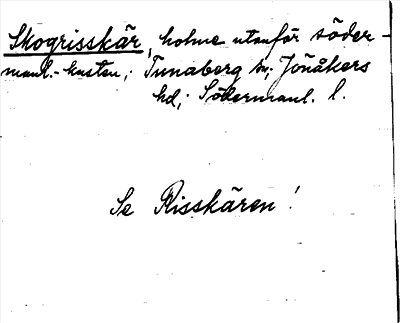 Skogrisskär, holme utanför söder-
manl.-kusten; Tunaberg sn; Jönåkers
hd; Södermanl. l.
Se Risskären!